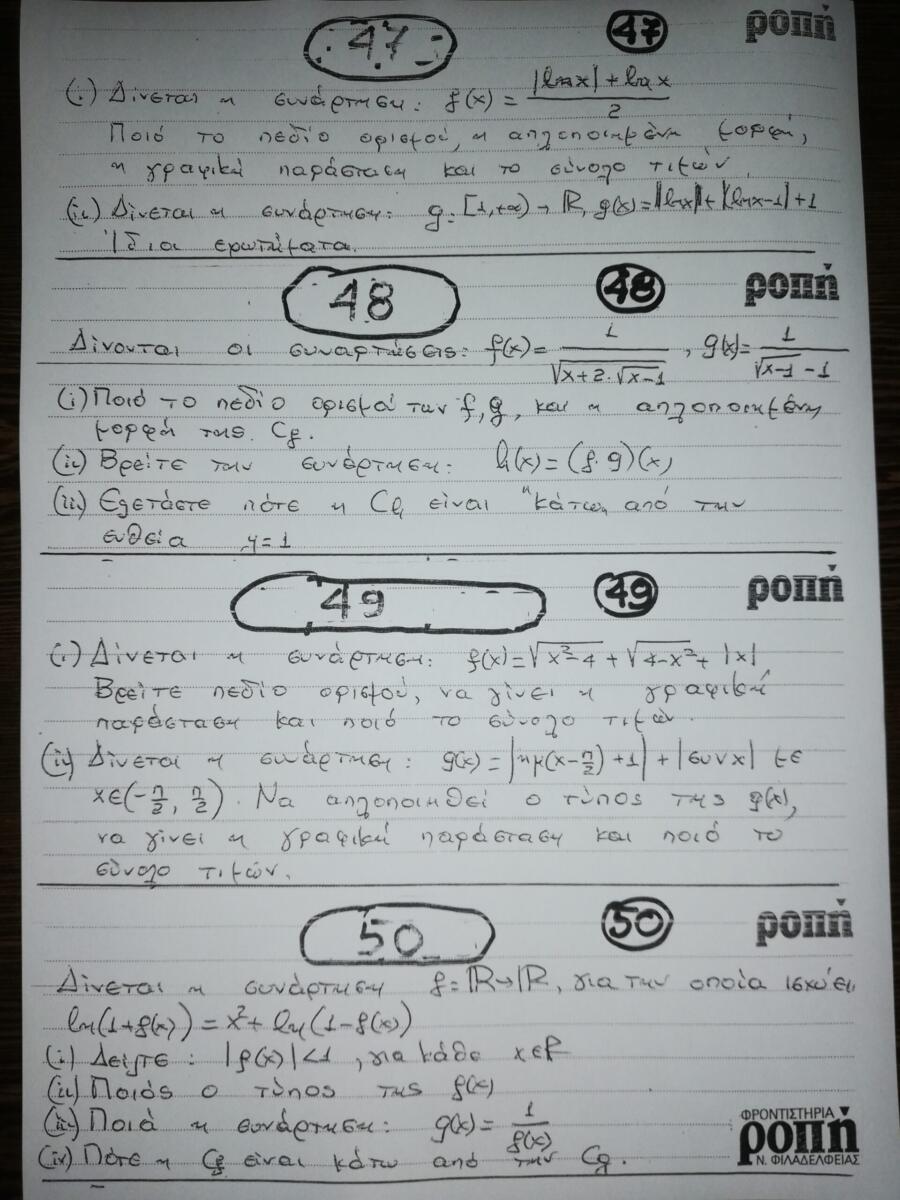 47 47 ροπή
(i) Δίνεται η συνάρτηση: f(x) = |lnx| + lnx / 2
Ποιό το πεδίο ορισμού, η απλοποιημένη μορφή,
η γραφική παράσταση και το σύνολο τιμών.
(ii) Δίνεται η συνάρτηση: g: [1,+∞) → ℝ, g(x) = |lnx| + |lnx-1| + 1
Ίδια ερωτήματα.
48 48 ροπή
Δίνονται οι συναρτήσεις: f(x) = 1/√(x+2·√(x-1)) , g(x) = 1/(√(x-1) - 1)
(i) Ποιό το πεδίο ορισμού των f, g, και η απλοποιημένη
μορφή της Cf.
(ii) Βρείτε την συνάρτηση: h(x) = (f·g)(x)
(iii) Εξετάστε πότε η Ch είναι "κάτω" από την
ευθεία y=1
49 49 ροπή
(i) Δίνεται η συνάρτηση: f(x) = √(x²-4) + √(4-x²) + |x|
Βρείτε πεδίο ορισμού, να γίνει η γραφική
παράσταση και ποιό το σύνολο τιμών.
(ii) Δίνεται η συνάρτηση: g(x) = |ημ(x-π/2)+1| + |συνx| με
x∈(-π/2, π/2). Να απλοποιηθεί ο τύπος της g(x),
να γίνει η γραφική παράσταση και ποιό το
σύνολο τιμών.
50 50 ροπή
Δίνεται η συνάρτηση f: ℝ→ℝ, για την οποία ισχύει
ln(1+f(x)) = x² + ln(1-f(x))
(i) Δείξτε: |f(x)|<1, για κάθε x∈ℝ
(ii) Ποιός ο τύπος της f(x)
(iii) Ποιά η συνάρτηση: g(x) = 1/f(x)
(iv) Πότε η Cf είναι κάτω από την Cg.
ΦΡΟΝΤΙΣΤΗΡΙΑ
ροπή
Ν. ΦΙΛΑΔΕΛΦΕΙΑΣ